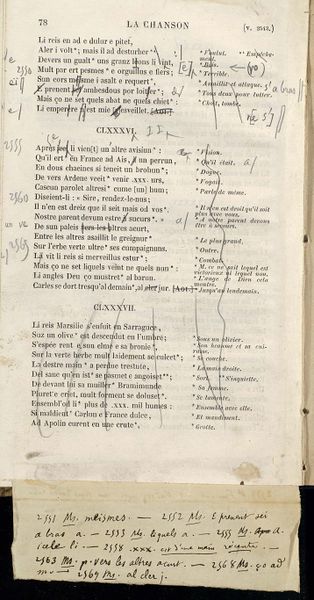 78 LA CHANSON (v. 2542.)
Li reis en ad e dulur e pitet,
Aler i volt* ; mais il ad desturber* : * Voulut. * Empêche-
ment.
Devers un gualt* uns granz leons li vint, * Bois.
Mult par ert pesmes* e orguillus e fiers ; * Terrible.
Sun cors meïsme i asalt e requert*, * Assaillit et attaque.
E prenent ambesdous por loiter* ; * Tous deux pour lutter.
Mais ço ne set quels abat ne quels chiet* : * Choit, tombe.
Li emperére n'est mie esveillet. [Aoi.]
CLXXXVI.
Après li vien[t] un altre avisiun* : * Vision.
Qu'il ert* en France ad Ais, a un perrun, * Qu'il était.
En dous chaeines si teneit un brohun* ; * Dogue.
De vers Ardene veeit* venir .xxx. urs, * Voyait.
Cascun parolet altresi* cume [un] hum ; * Parle de même.
Diseient-li : « Sire, rendez-le-nus ;
Il n'en est dreiz que il seit mais od vos*. * Il n'en est droit qu'il soit
plus avec vous.
Nostre parent devum estre a sucurs*. » * A notre parent devons
être à secours.
De sun paleis vers les altres acurt,
Entre les altres asaillit le greignur* * Le plus grand,
Sur l'erbe verte ultre* ses cumpaignuns. * Outre.
La vit li reis si merveillus estur* ; * Combat.
Mais ço ne set liquels veint ne quels nun* : * M. ce ne sait lequel est
victorieux ni lequel non.
Li angles Deu ço mustret* al barun. * L'ange de Dieu cela
montre.
Carles se dort tresqu'al demain*, al cler jur. [Aoi.] * Jusqu'au lendemain.
CLXXXVII.
Li reis Marsilie s'enfuit en Sarraguce,
Suz un olive* est descendut en l'umbre ; * Sous un olivier.
S'espée rent e sun elme e sa bronie*, * Son haume et sa cui-
rasse.
Sur la verte herbe mult laidement se culcet* ; * Se couche.
La destre main* a perdue trestute, * La main droite.
Del sanc qu'en ist* se pasmet e angoiset**; * Sort. ** S'inquiette.
De devant lui sa muiller* Bramimunde * Sa femme.
Pluret* e criet, mult forment se doluset* ; * Se lamente.
Ensembl'od li* plus de .xxx. mil humes : * Ensemble avec elle.
Si maldient* Carlun e France dulce, * Et maudissent.
Ad Apolin curent en une crute*, * Grotte.
2551 Ms. meismes. — 2552 Ms. E prenent sei
a bras a. — 2553 Ms. liquels a. — 2555 Ms.
icele li — 2558 .xxx. est d'une main récente. —
2563 Ms. p. vers les altres acurt. — 2568 Ms. ço ad
— 2569 Ms. al der j.